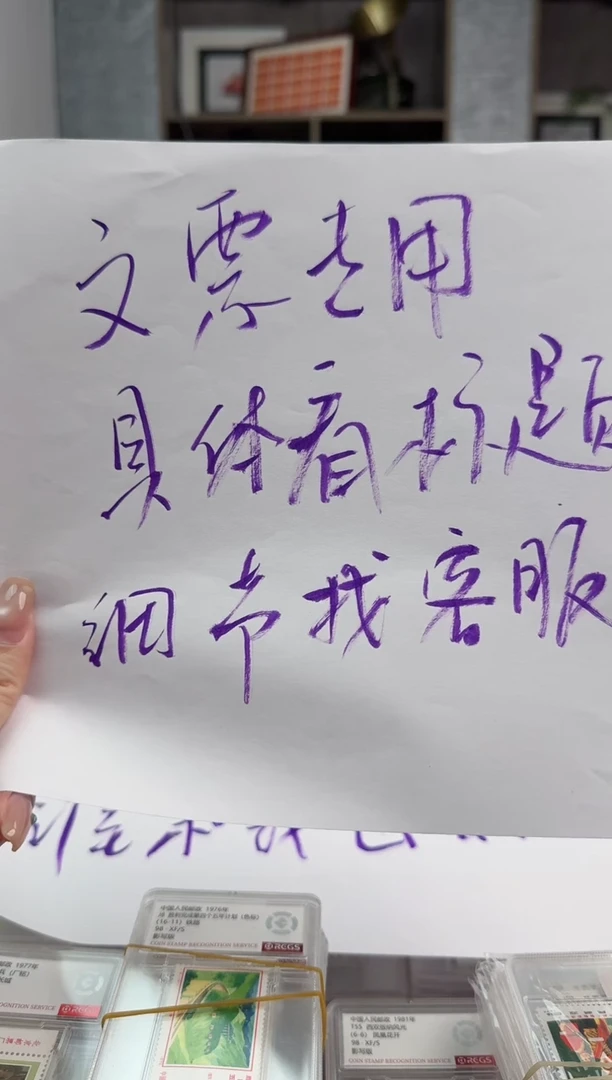 文票专用
具体看标题
细节找客服
中国人民邮政 1976年
J8 胜利完成第四个五年计划（总结）
(16-11) 铁路
98 · XF/S
影写版
COIN STAMP RECOGNITION SERVICE RCGS
1977年
RECOGNITION SERVICE RCGS
中国人民邮政 1981年
T55 西双版纳风光
(6-6) 凤凰花开
98 · XF/S
影写版
COIN STAMP RECOGNITION SERVICE RCGS